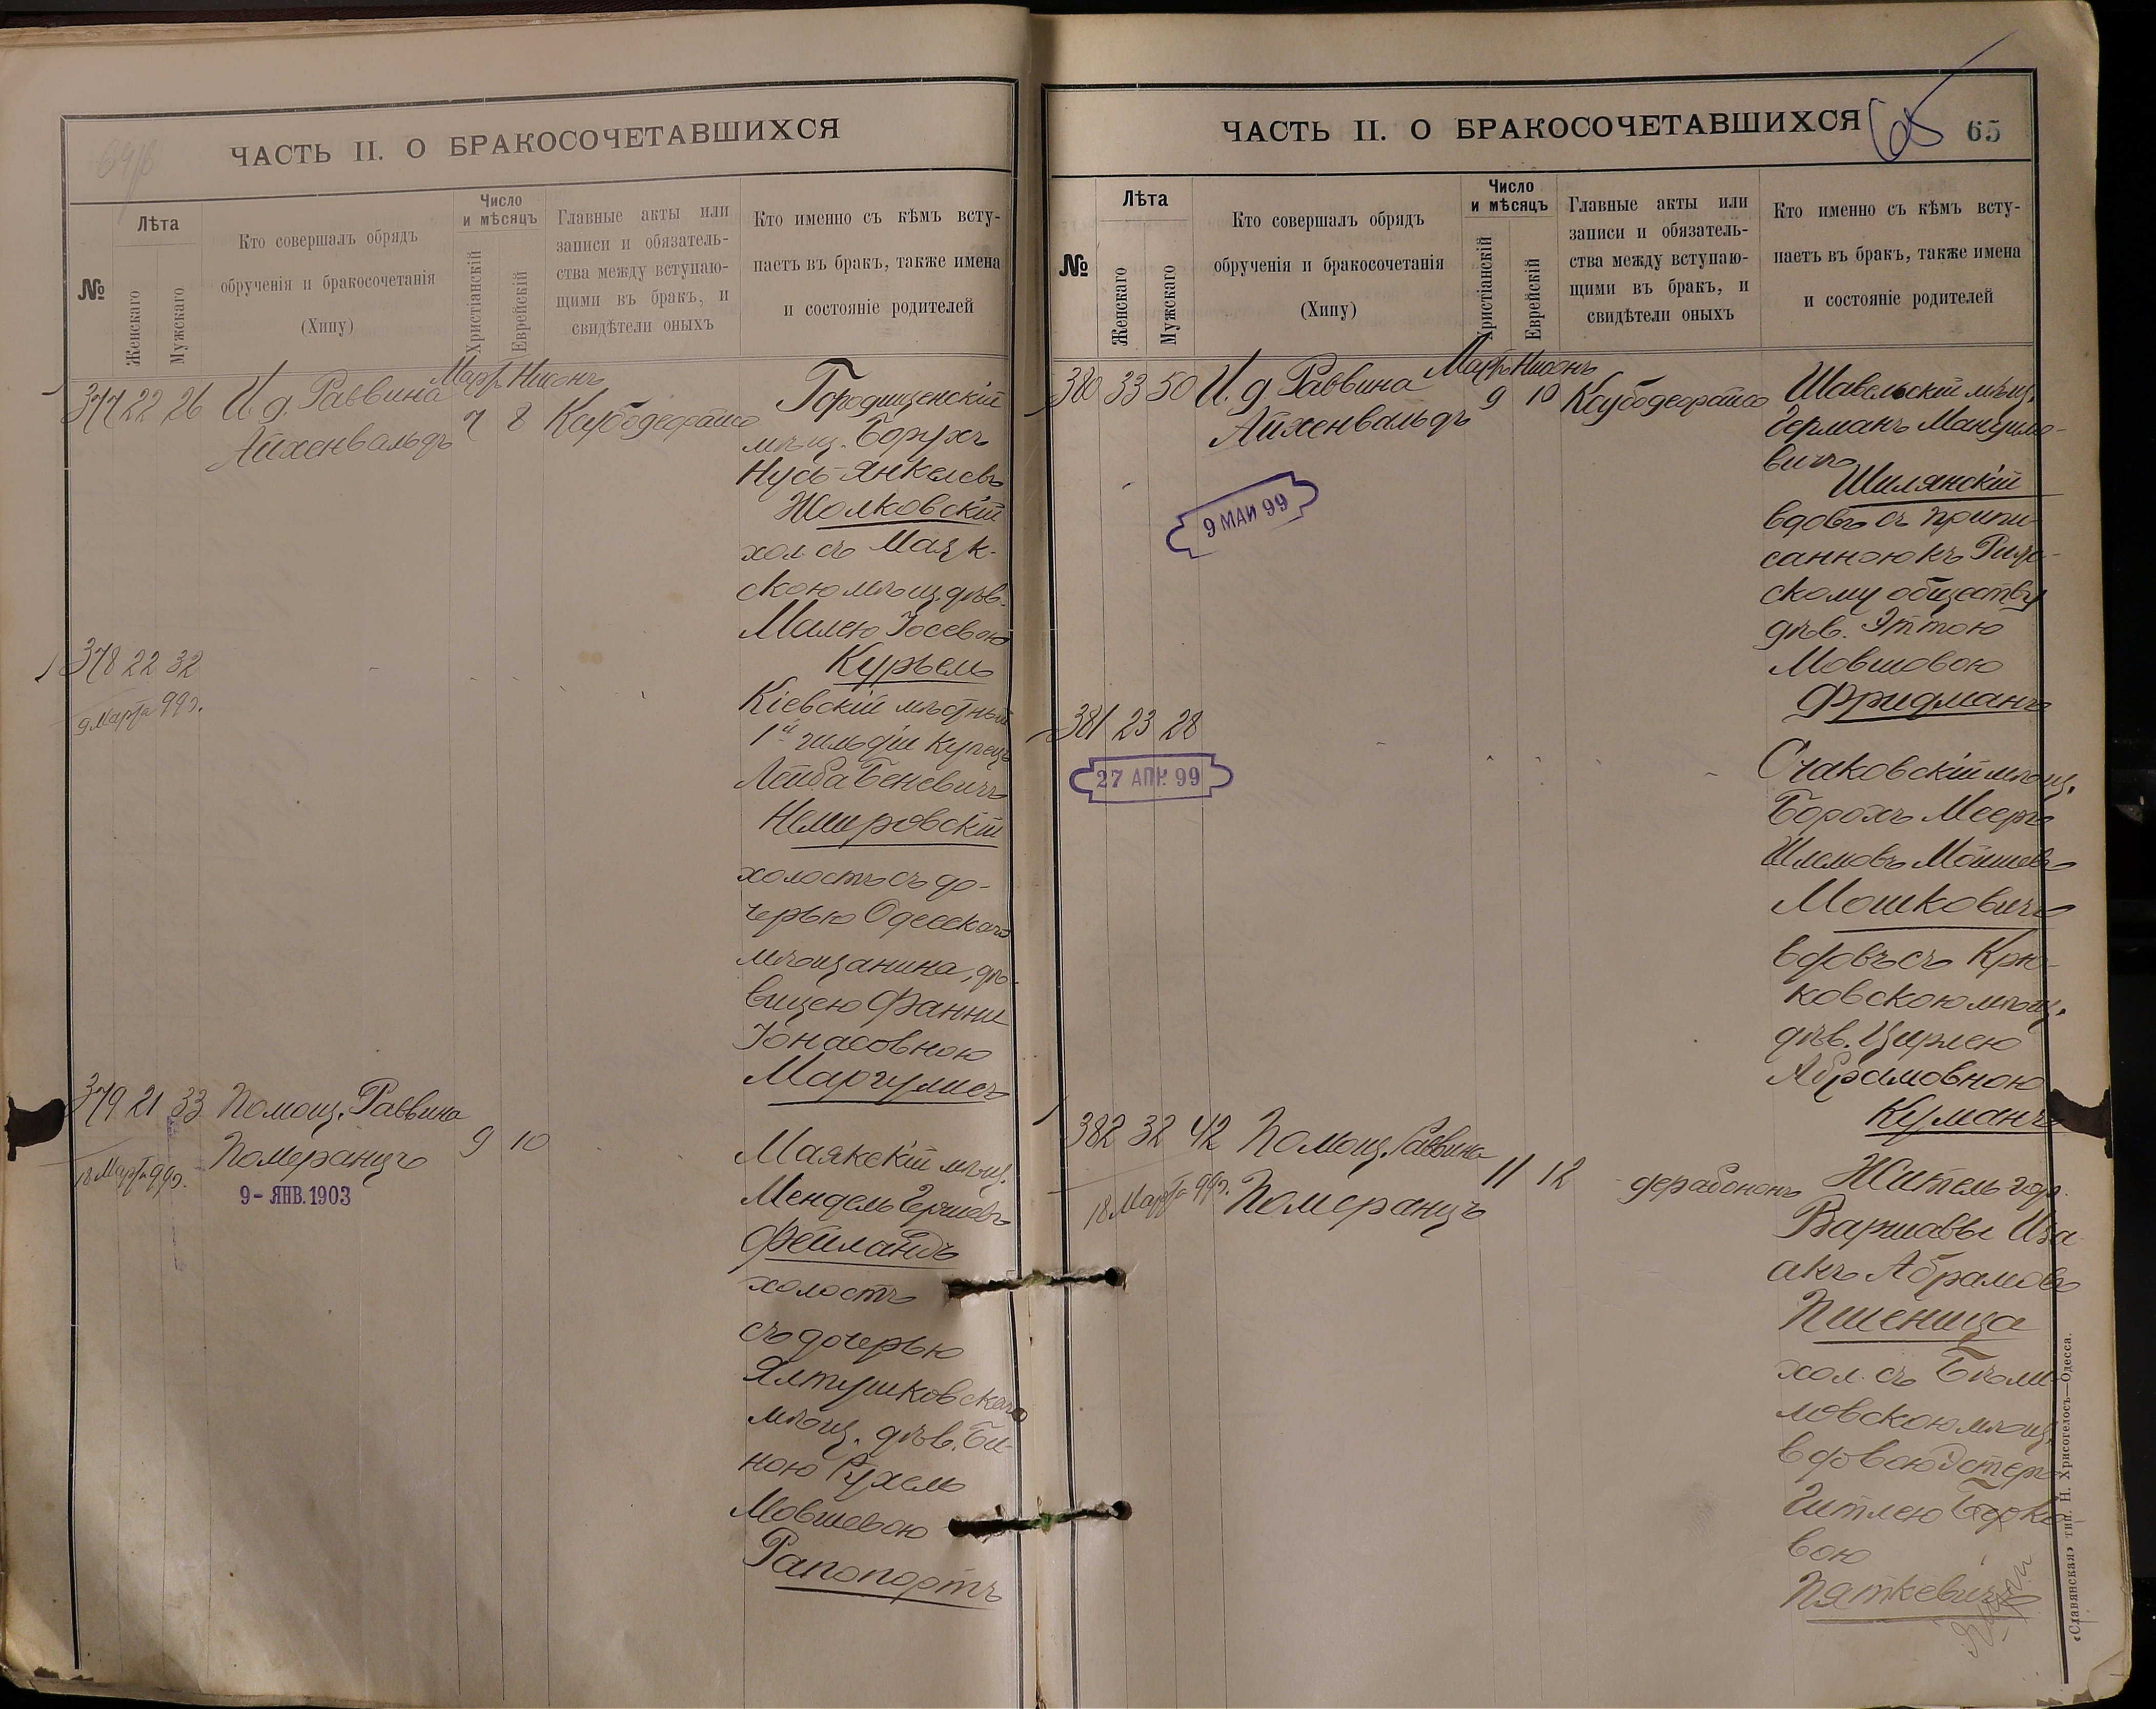 ЧАСТЬ II. О БРАКОСОЧЕТАВШИХСЯ
№
Лѣта
Женскаго
Мужскаго
Кто совершалъ обрядъ
обрученія и бракосочетанія
(Хипу)
Число
и мѣсяцъ
Христіанскій
Еврейскій
Главные акты или
записи и обязатель-
ства между вступаю-
щими въ бракъ, и
свидѣтели оныхъ
Кто именно съ кѣмъ всту-
паетъ въ бракъ, также имена
и состояніе родителей
377 22 26 И. д. Раввина
Айхенвальдъ
Март. Нисонъ
7 8
Городищенскій
мѣщ. Борухъ
Нусъ-Янкелевъ
Жолковскій
хол. съ Маяк-
скою мѣщ. дѣв.
Малею Іосевою
Курьель
378 22 32
9 Марта 99 г.
Кіевскій мѣстный
1й гильдіи купецъ
Лейба Беневичъ
Немировскій
холостъ съ до-
черью Одесскаго
мѣщанина, дѣ-
вицею Фанни
Іонасовною
Маргулисъ
379 21 33 Помощ. Раввина
Померанцъ
9 10
18 Марта 99 г.
9 - ЯНВ. 1903
Маякскій мѣщ.
Мендель Гершевъ
Фейландъ
холостъ
съ дочерью
Ялтушковскаго
мѣщ. дѣв. Би-
ною Рухель
Мовшевою
Рапопортъ
ЧАСТЬ II. О БРАКОСОЧЕТАВШИХСЯ
65
65
№
Лѣта
Женскаго
Мужскаго
Кто совершалъ обрядъ
обрученія и бракосочетанія
(Хипу)
Число
и мѣсяцъ
Христіанскій
Еврейскій
Главные акты или
записи и обязатель-
ства между вступаю-
щими въ бракъ, и
свидѣтели оныхъ
Кто именно съ кѣмъ всту-
паетъ въ бракъ, также имена
и состояніе родителей
380 33 50 И. д. Раввина
Айхенвальдъ
Март. Нисонъ
9 10
9 МАИ 99
Шавельскій мѣщ.
Германъ
вичъ
Шилянскій
вдовъ съ припи-
санною къ Риж-
скому обществу
дѣв. Эттою
Мовшовою
Фридманъ
381 23 28
27 АПР. 99
Очаковскій мѣщ.
Борохъ Мееръ
Шлемовъ
Мошковичъ
вдовъ съ Крю-
ковскою мѣщ.
дѣв. Цирлею
Абрамовною
Куманъ
382 32 42 Помощ. Раввина
Померанцъ
11 12
18 Марта 99 г.
дерабононъ
Житель гор.
Варшавы Иза-
акъ Абрамовъ
Пшеница
хол. съ
ловскою мѣщ.
вдовою Эстеръ
Гитлею Берко-
вою
Пяткевичъ
«Славянская» тип. Н. Хрисогелосъ—Одесса.